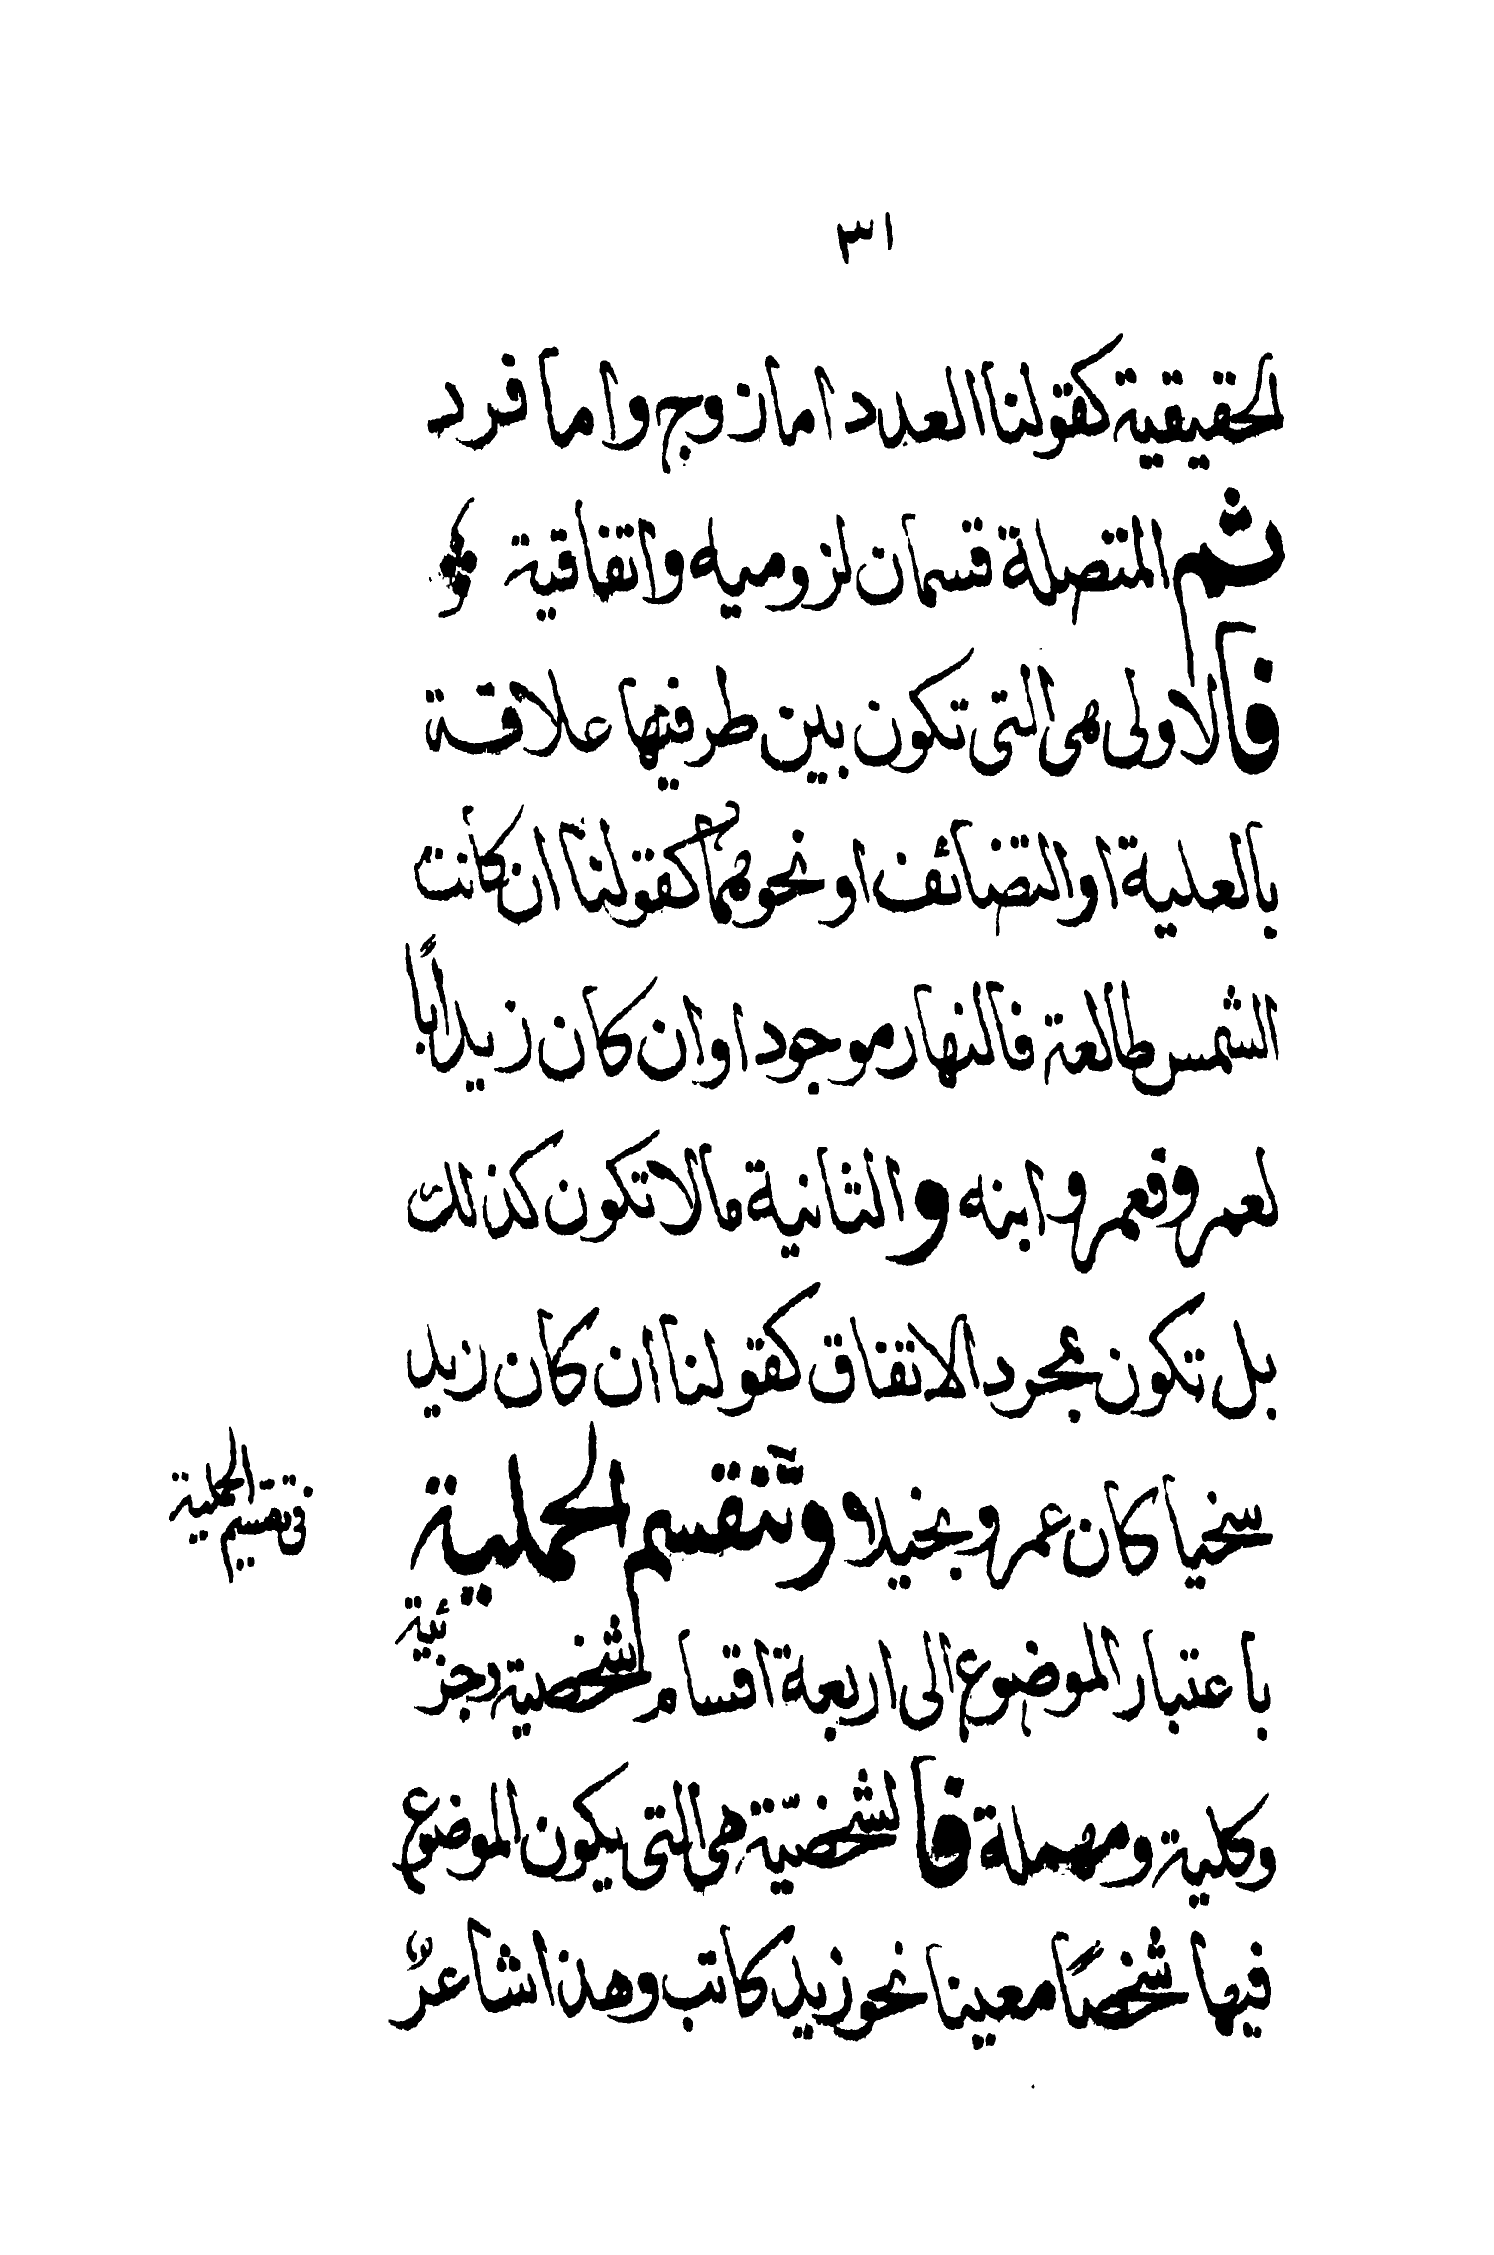 ٣١
الحقيقية كقولنا العدد اما زوج واما فرد
ثم المتصلة قسمان لزوميه واتفاقية
فالاولى هى التى تكون بين طرفيها علاقة
بالعلية او التضائف او نحوهما كقولنا ان كانت
الشمس طالعة فالنهار موجود او ان كان زيد اباً
لعمرو فعمرو ابنه والثانية ما لا تكون كذلك
بل تكون بمجرد الاتفاق كقولنا ان كان زيد
سخيا كان عمرو بخيلا وتنقسم الحملية
فى تقسيم الحملية
باعتبار الموضوع الى اربعة اقسام شخصية وجزئية
وكلية ومهملة فالشخصيّة هى التى يكون الموضوع
فيها شخصاً معينا نحو زيد كاتب وهذا شاعرٌ